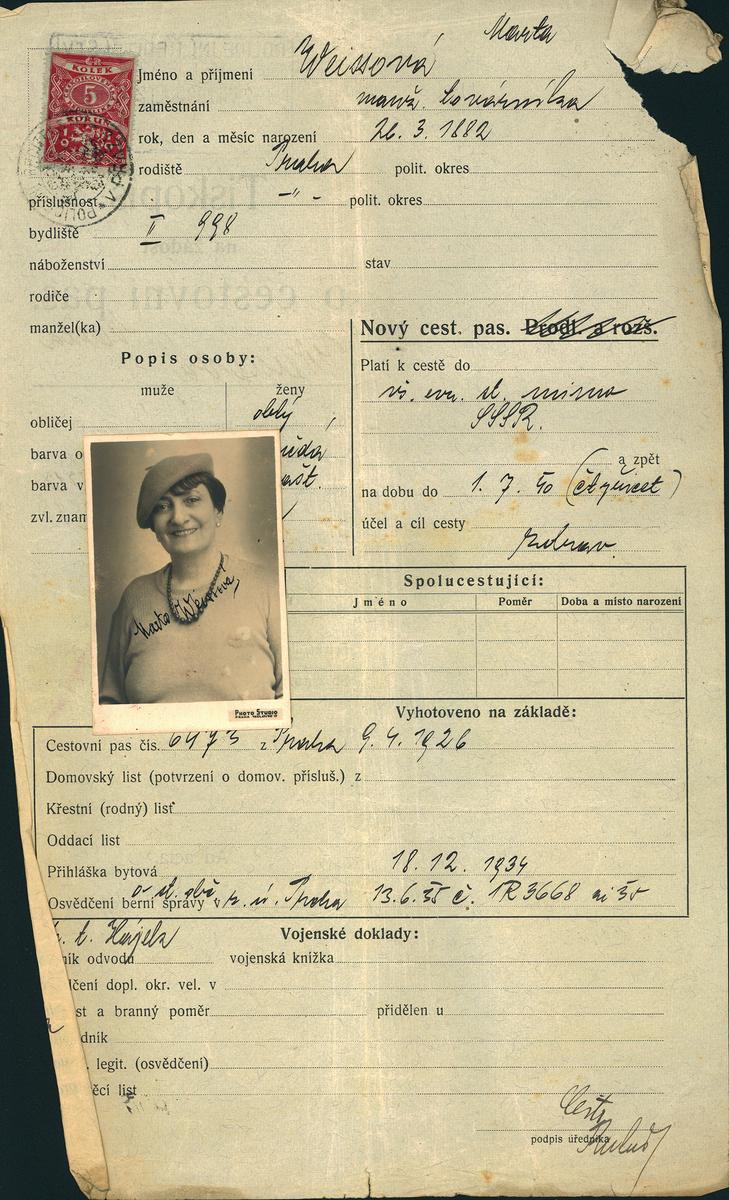 Marta
ČR
KOLEK
5
KORUN
Jméno a příjmení Weissová
zaměstnání manž. továrníka
rok, den a měsíc narození 26. 3. 1882
rodiště Praha polit. okres
příslušnost -"- polit. okres
bydliště II 998
náboženství stav
rodiče
manžel(ka)
Nový cest. pas. Prodl. a rozš.
Popis osoby:
muže ženy
obličej oblý
barva o
barva v
zvl. znam
Platí k cestě do
mimo
SSSR.
a zpět
na dobu do 1. 7. 40 (čtyřicet)
účel a cíl cesty
zdrav.
Marta Weissova
PHOTO STUDIO
Spolucestující:
Jméno Poměr Doba a místo narození
Vyhotoveno na základě:
Cestovní pas čís. 6473 z Praha 9. 4. 1926
Domovský list (potvrzení o domov. přísluš.) z
Křestní (rodný) list
Oddací list
Přihláška bytová 18. 12. 1934
Osvědčení berní správy v Praha 13. 6. 35 č. 1R3668 ai 35
Vojenské doklady:
ník odvodu vojenská knížka
lčení dopl. okr. vel. v
st a branný poměr přidělen u
dník
. legit. (osvědčení)
ěcí list
podpis úředníka